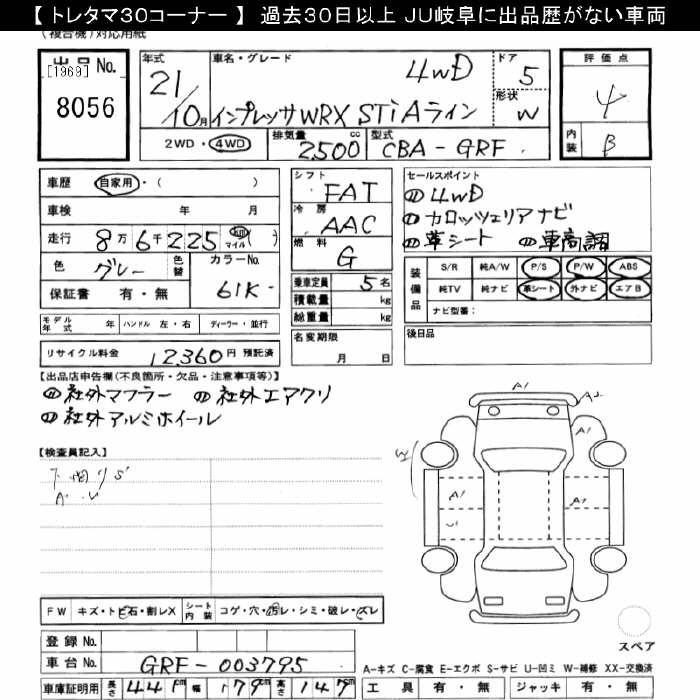 【 トレタマ30コーナー 】 過去30日以上 JU岐阜に出品歴がない車両
(複合機)対応用紙
出品No. [1969] 8056
年式 21/10月
車名・グレード 4WD インプレッサWRX STi Aライン
ドア 5
形状 W
2WD・4WD
排気量 2500cc
型式 CBA-GRF
評価点 4
内装 B
車歴 自家用・( )
車検 年 月
走行 8万6千225 km マイル ( )
色 グレー 色替 カラーNo. 61K-
保証書 有・無
シフト FAT
冷房 AAC
燃料 G
乗車定員 5名
積載量 kg
総重量 kg
セールスポイント
4WD
カロッツェリアナビ
革シート 車高調
装備品 S/R 純A/W P/S P/W ABS
純TV 純ナビ 革シート 外ナビ エアB
ナビ型番:
モデル年式 年 ハンドル 左・右 ディーラー・並行
名変期限 月 日
後日品
リサイクル料金 12360円 預託済
【出品店申告欄(不良箇所・欠品・注意事項等)】
社外マフラー 社外エアクリ
社外アルミホイール
【検査員記入】
A1
A2
A1
W
A1 A1
FW キズ・トビ石・割レX シート内装 コゲ・穴・汚レ・シミ・破レ・スレ
登録No.
車台No. GRF-003795
スペア
A-キズ C-腐食 E-エクボ S-サビ U-凹ミ W-補修 XX-交換済
車庫証明用 長さ 441cm 幅 179cm 高さ 147cm
工具 有・無 ジャッキ 有・無